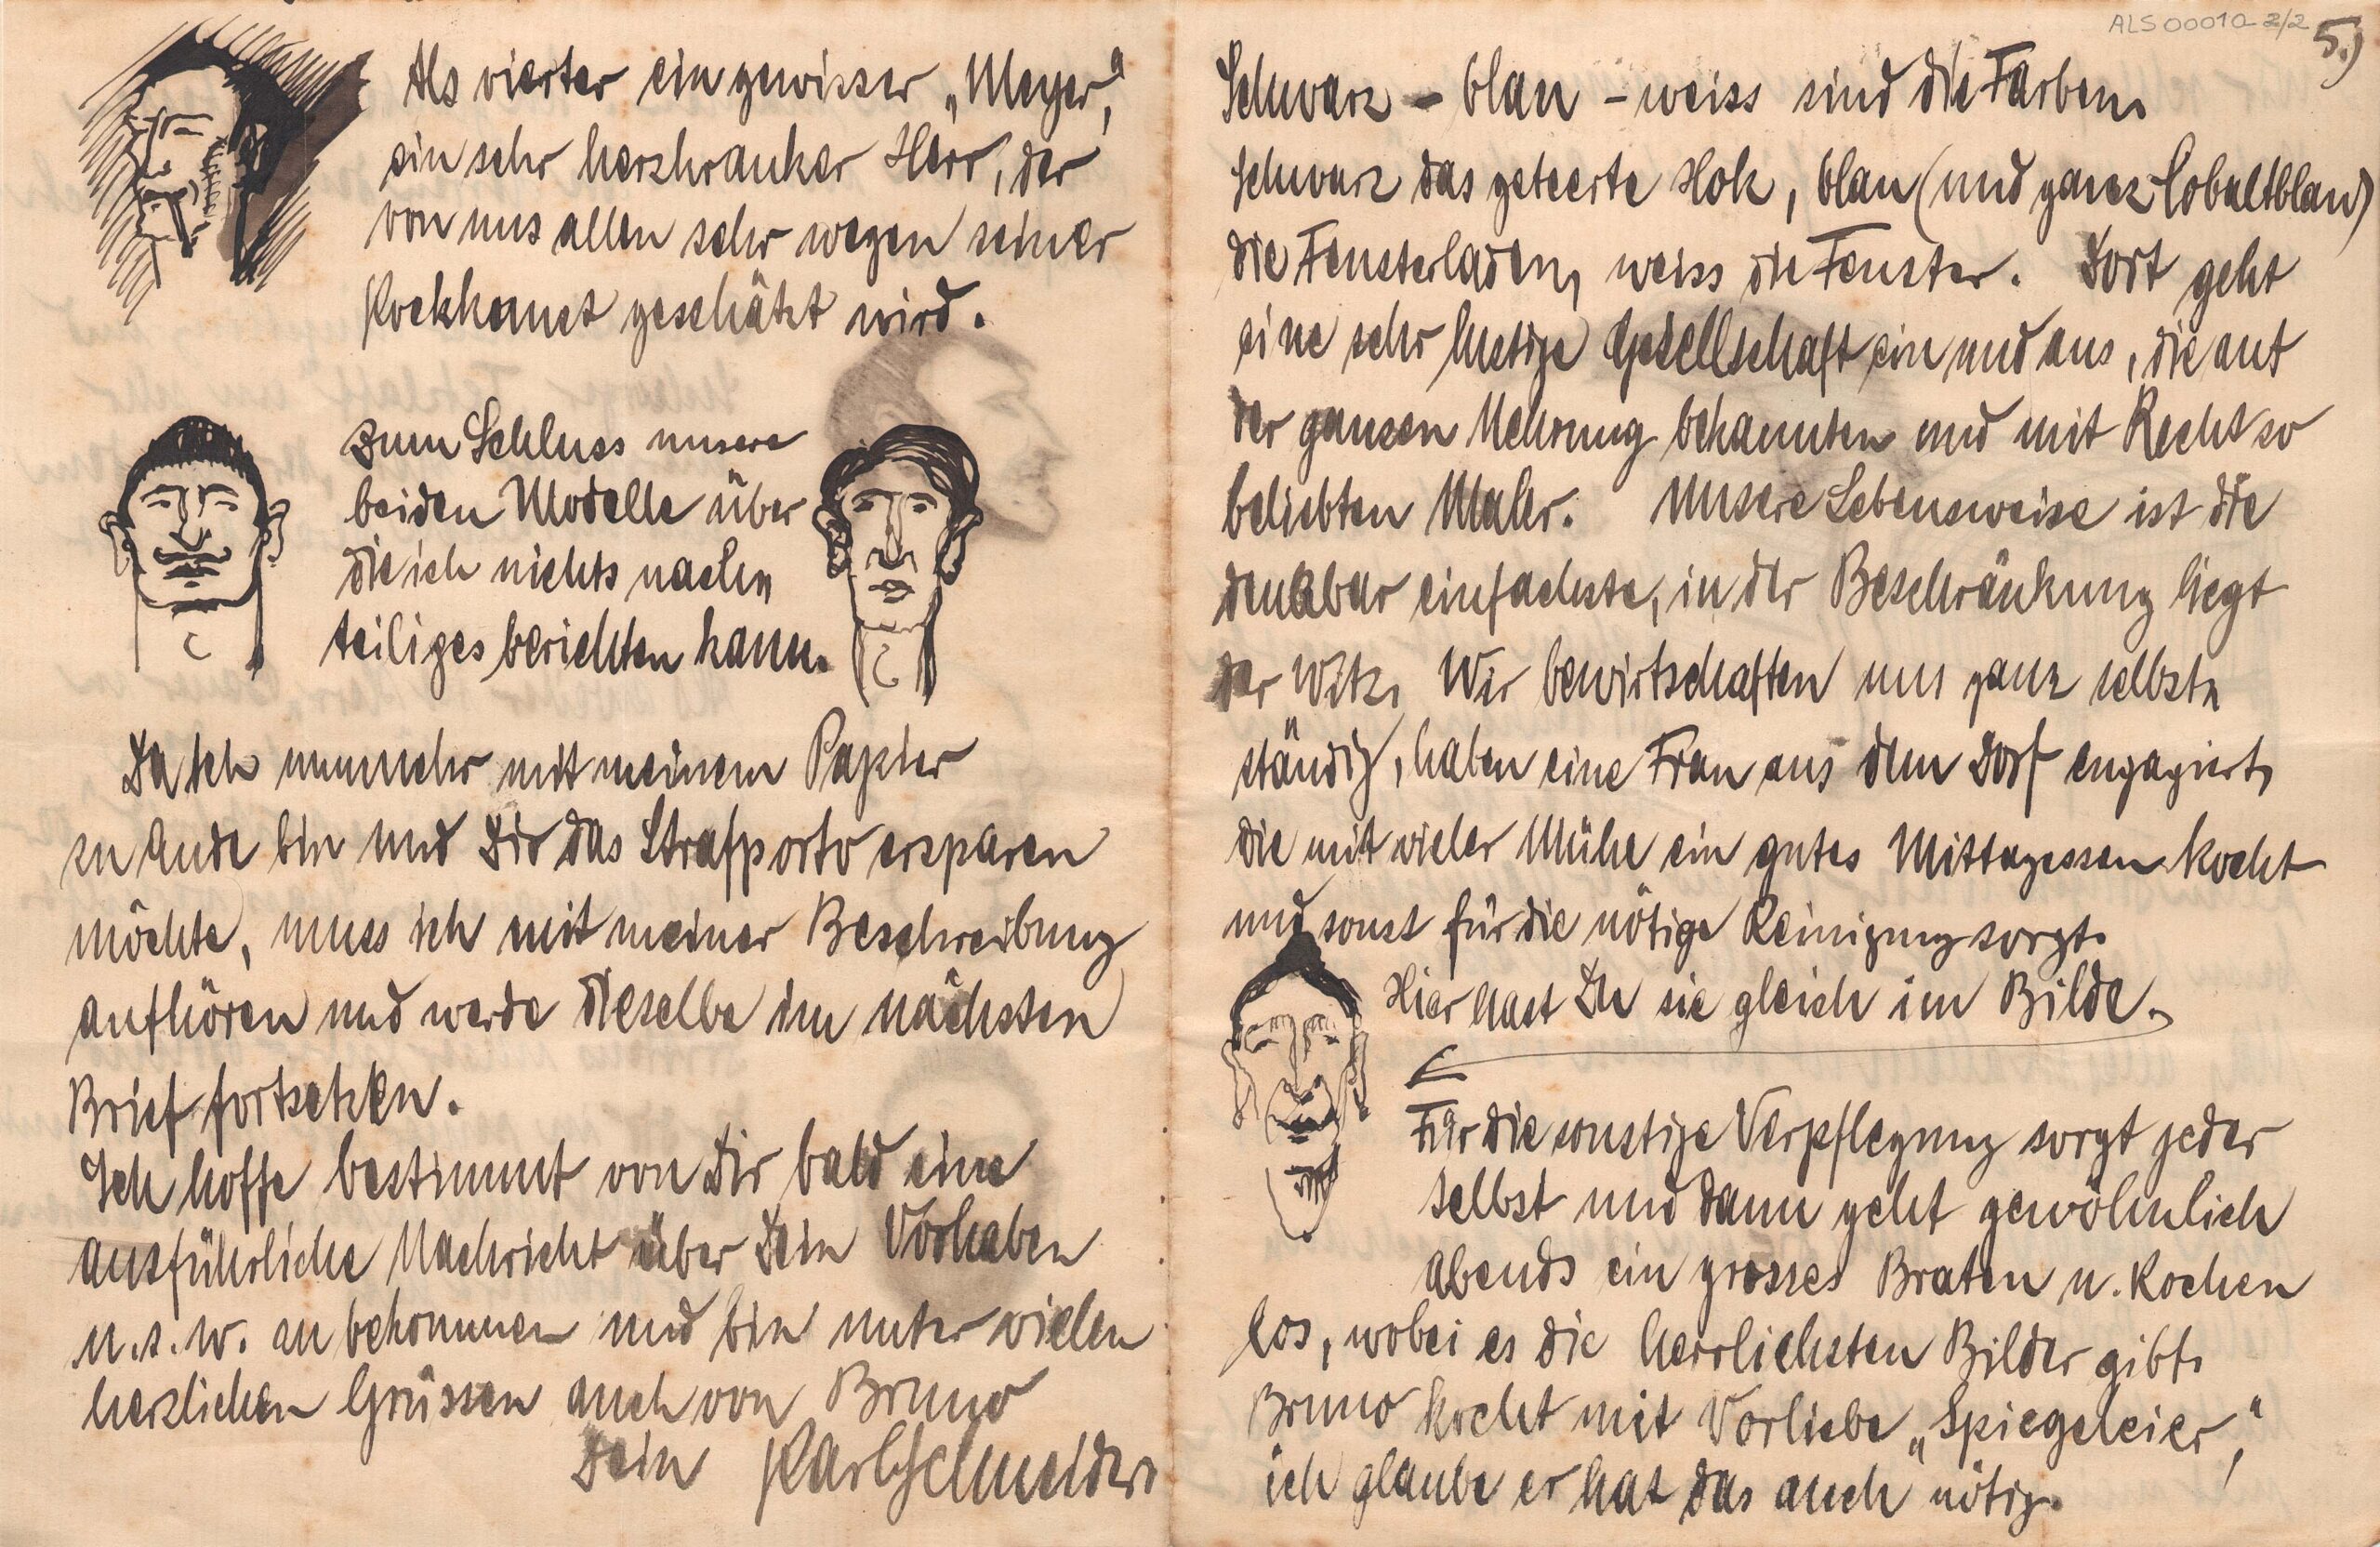 Als vierter ein gewisser „Meyer“,
ein sehr herzkranker Herr, der
von uns allen sehr wegen seiner
Kochkunst geschätzt wird.
Zum Schluss unsere
beiden Modelle über
die ich nichts nach-
teiliges berichten kann.
Da ich nunmehr mit meinem Papier
zu Ende bin und Dir das Strafporto ersparen
möchte, muss ich mit meiner Beschreibung
aufhören und werde dieselbe im nächsten
Brief fortsetzen.
Ich hoffe bestimmt von Dir bald eine
ausführliche Nachricht über Dein Vorhaben
u.s.w. zu bekommen und bin unter vielen
herzlichen Grüssen auch von Bruno
Dein Karl Schneider
ALS 00010-2/2
5.)
Schwarz - blau - weiss sind die Farben.
Schwarz das geteerte Holz, blau (und ganz Cobaltblau)
die Fensterladen, weiss die Fenster. Dort geht
eine sehr lustige Gesellschaft ein und aus, die auf
der ganzen Nehrung bekannten und mit Recht so
beliebten Maler. Unsere Lebensweise ist die
denkbar einfachste, in der Beschränkung liegt
der Witz. Wir bewirtschaften uns ganz selbst-
ständig, haben eine Frau aus dem Dorf engagiert,
die mit vieler Mühe ein gutes Mittagessen kocht
und sonst für die nötige Reinigung sorgt.
Hier hast Du sie gleich im Bilde.
Für die sonstige Verpflegung sorgt jeder
selbst und dann geht gewöhnlich
abends ein grosses Braten u. Kochen
los, wobei es die herrlichsten Bilder gibt.
Bruno kocht mit Vorliebe „Spiegeleier“,
ich glaube er hat das auch nötig.